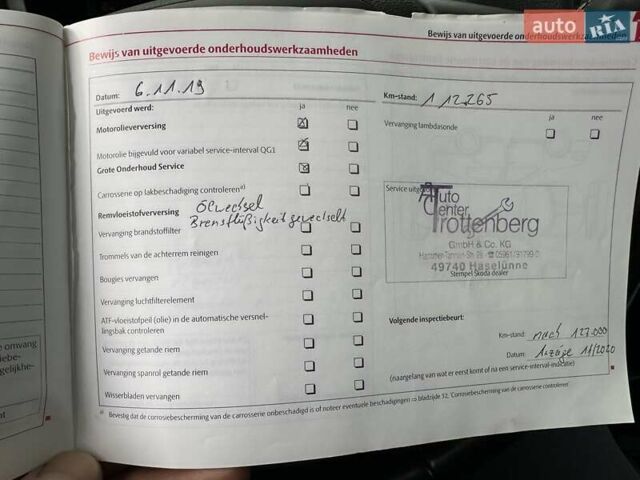 auto RIA
Bewijs van uitgevoerde onderhoudswerkzaamheden
Bewijs van uitgevoerde onderhoudswerkzaamheden
Datum: 6.11.19
Uitgevoerd werd: ja nee
Motorolieverversing
Motorolie bijgevuld voor variabel service-interval QG1
Grote Onderhoud Service
Carrosserie op lakbeschadiging controleren a)
Ölwechsel
Remvloeistofverversing Bremsflüßigkeit gewechselt
Vervanging brandstoffilter
Trommels van de achterrem reinigen
Bougies vervangen
Vervanging luchtfilterelement
ATF-vloeistofpeil (olie) in de automatische versnel-
lingsbak controleren
Vervanging getande riem
Vervanging spanrol getande riem
Wisserbladen vervangen
a) Bevestig dat de corrosiebescherming van de carrosserie onbeschadigd is of noteer eventuele beschadigingen ⇒ bladzijde 52, 'Corrosiebescherming van de carrosserie controleren'.
Km-stand: 112265
ja nee
Vervanging lambdasonde
Service uitge
Auto
Center
Trottenberg
GmbH & Co. KG
49740 Haselünne
Stempel Škoda dealer
Volgende inspectiebeurt:
Km-stand: nach 127.000
Datum: Anzeige 11/2020
(naargelang van wat er eerst komt of na een service-interval-indicatie)
e omvang
iebe-
gelijkhe-
nt